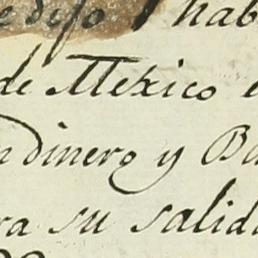 edijo hab
de Mexico e
n dinero y Ba
ra su salid